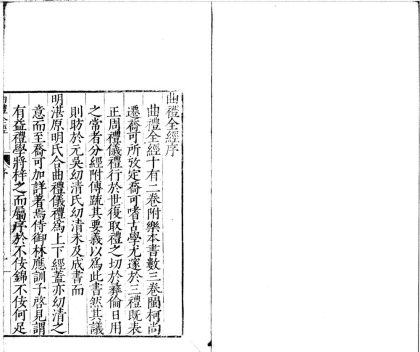 曲禮全經序
曲禮全經十有二卷附樂本書數三卷閩柯尚
遷喬可所攷定喬可嗜古學尤邃於三禮旣表
正周禮儀禮行於世復取禮之切於彝倫日用
之常者分經附傳疏其要義以爲此書然其議
則昉於元吳幼清氏幼清未及成書而
明湛原明氏合曲禮儀禮爲上下經蓋亦幼清之
意而至喬可加詳者焉侍御林應訓子啓見謂
有益禮學將梓之而屬序於不佞錦不佞何足
曲禮全經